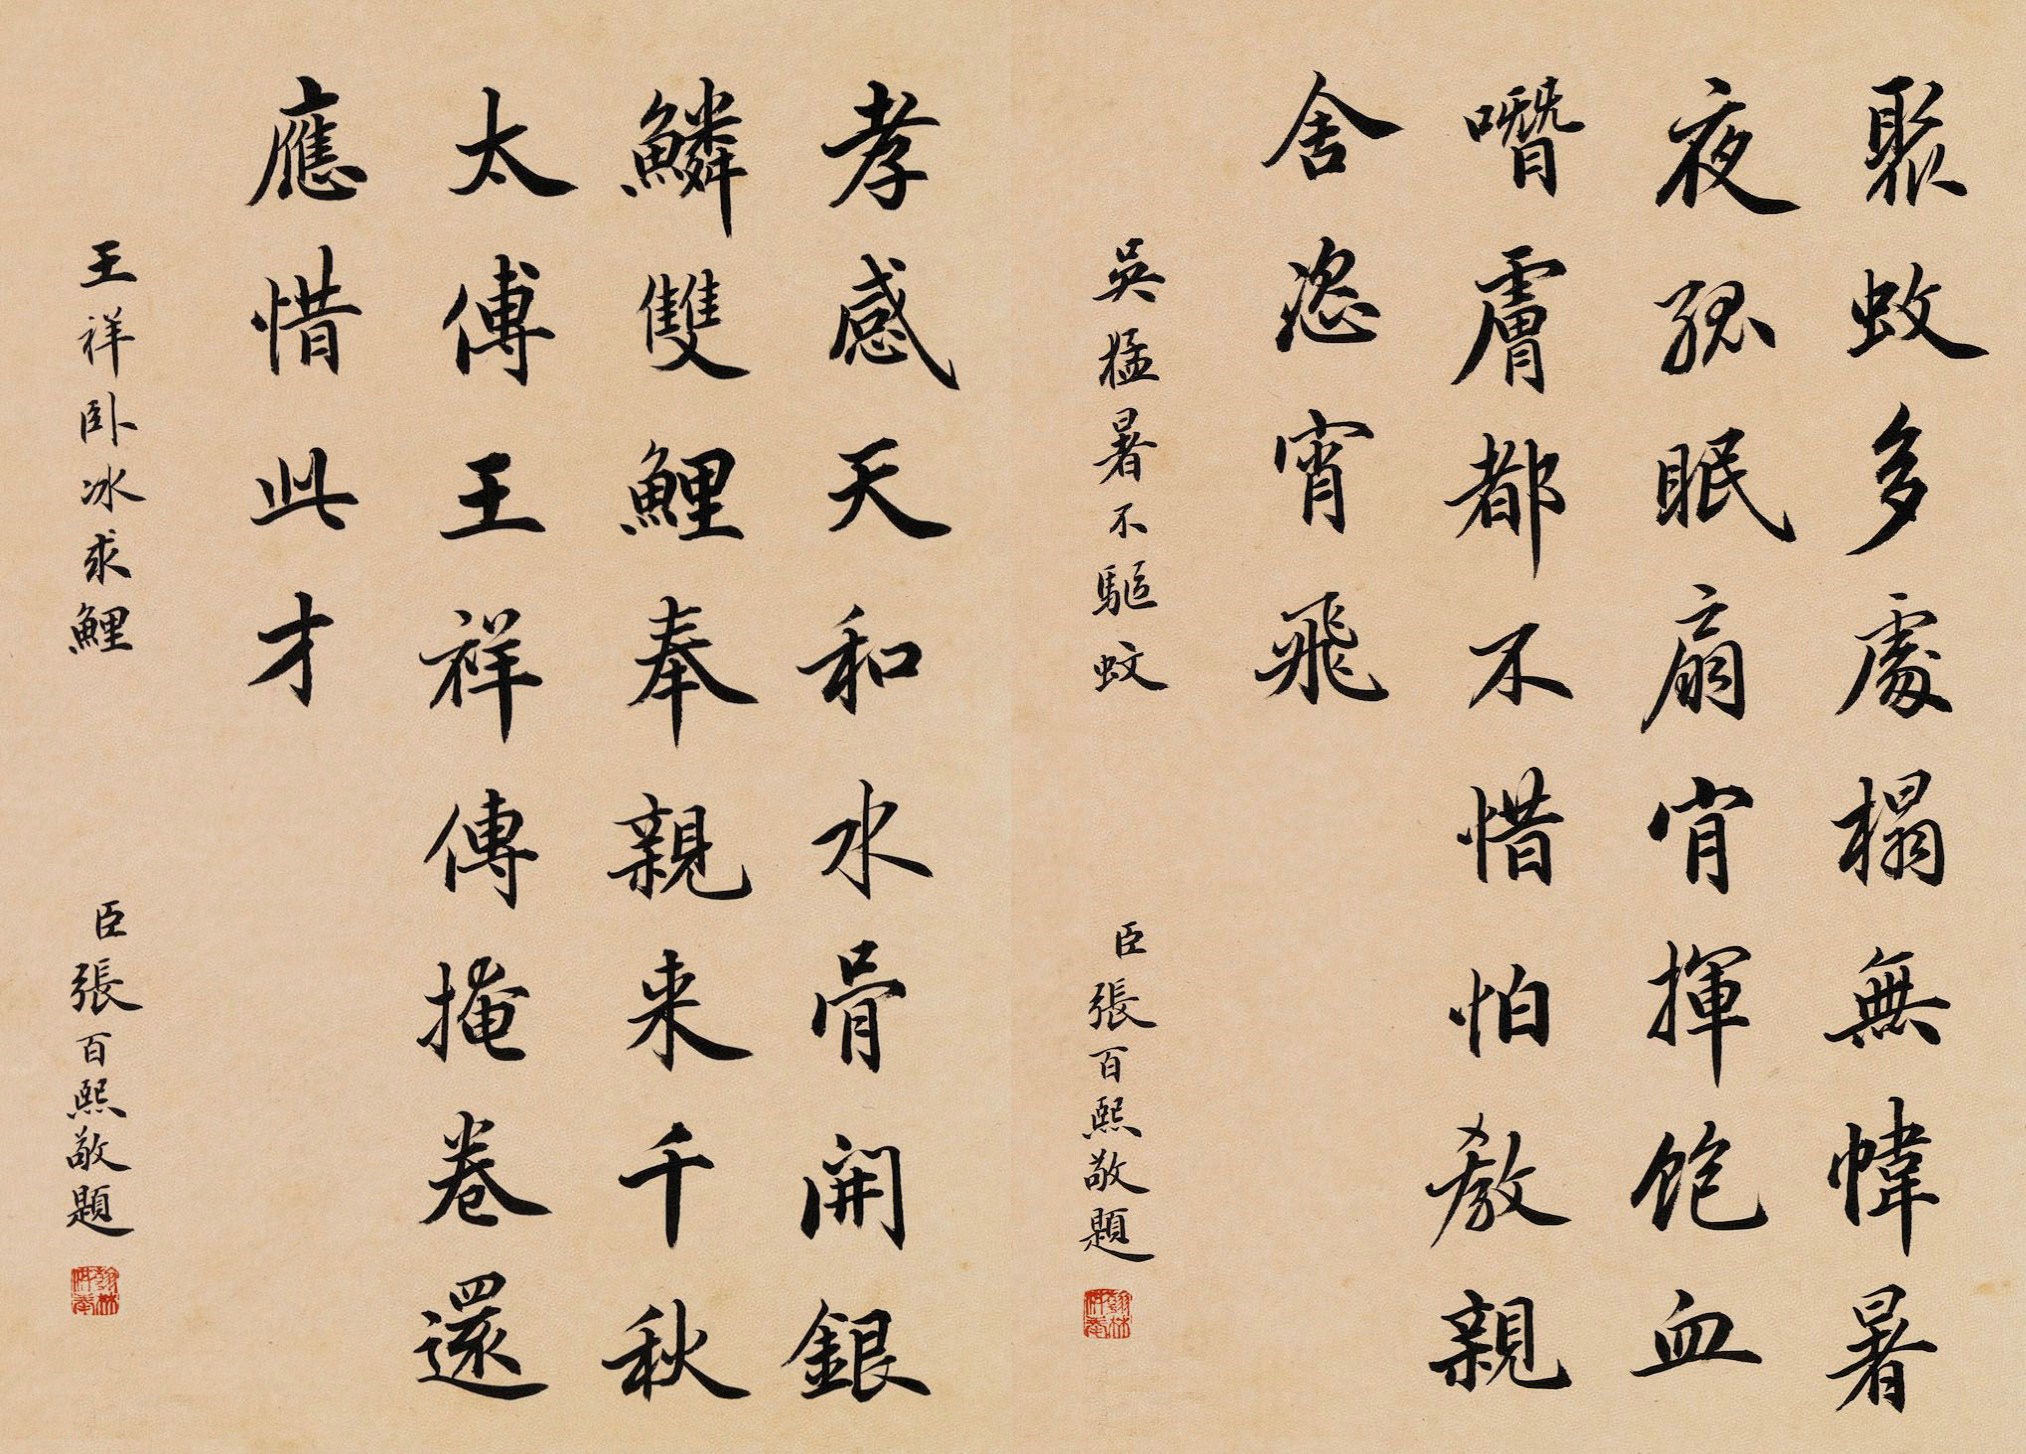 聚蚊多處榻無幃暑
夜孤眠扇宵揮飽血
噆膚都不惜怕教親
舍恣宵飛
吳猛暑不驅蚊
臣張百熙敬題
孝感天和水骨開銀
鱗雙鯉奉親来千秋
太傅王祥傳掩卷還
應惜此才
王祥卧冰求鯉
臣張百熙敬題